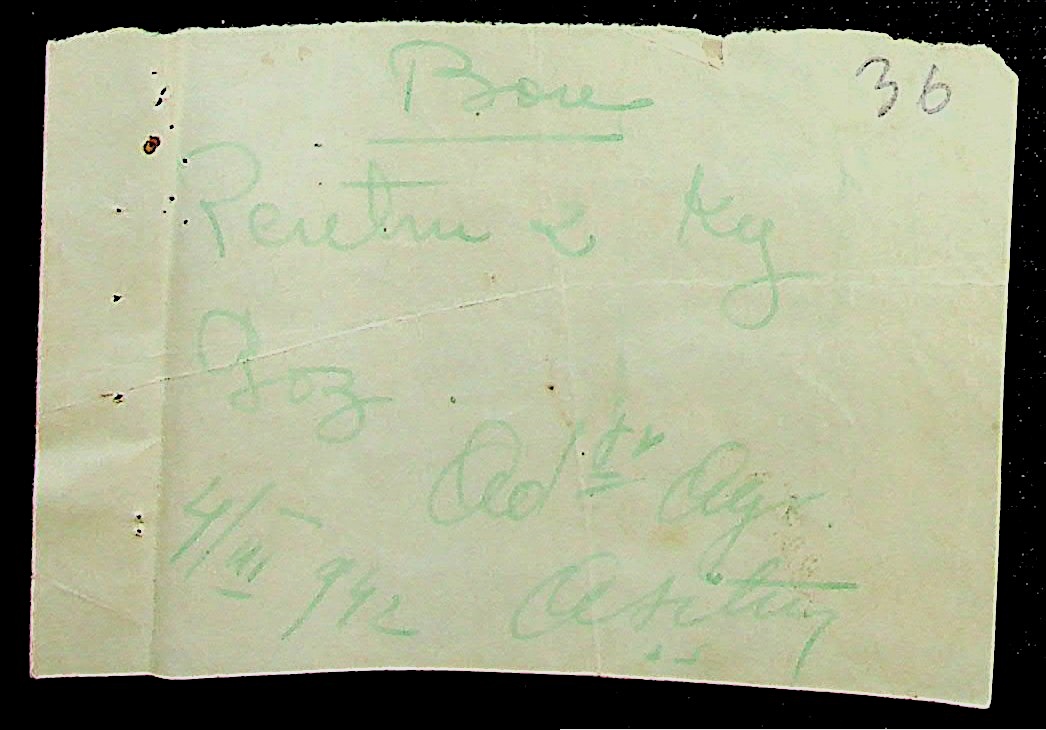 36
Bon
Pentru 2 Kg
Gaz
Adtr Agr.
4/III 942